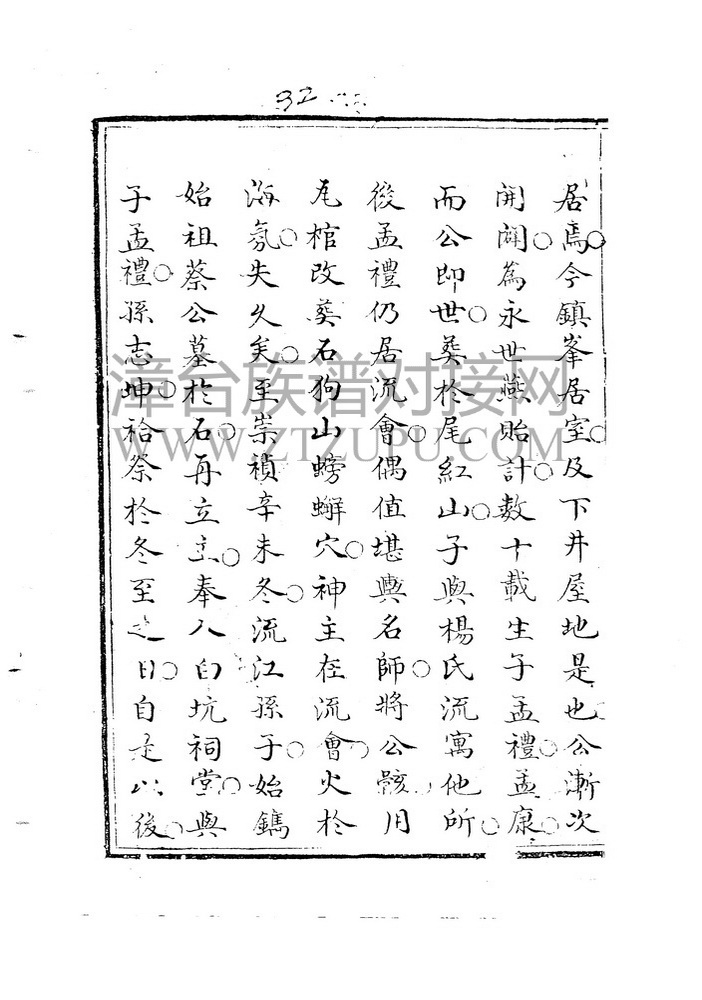 32
居焉○今鎮峯居室○及下井屋地是也○公漸次
開闢○為永世燕貽計○數十載生子孟禮○孟康○
而公即世○葬於尾紅山○子與楊氏流寓他所○
後孟禮仍居流會○偶值堪輿名師○將公骸用
瓦棺改葬石狗山螃蠏穴○神主在流會○火於
海氛○失久矣○至崇禎辛未冬○流江孫子○始鐫
始祖蔡公墓於石○再立主○奉入白坑祠堂○與
子孟禮○孫志坤○祫祭於冬至之日○自是以後○
漳台族谱对接网
WWW.ZTZUPU.COM